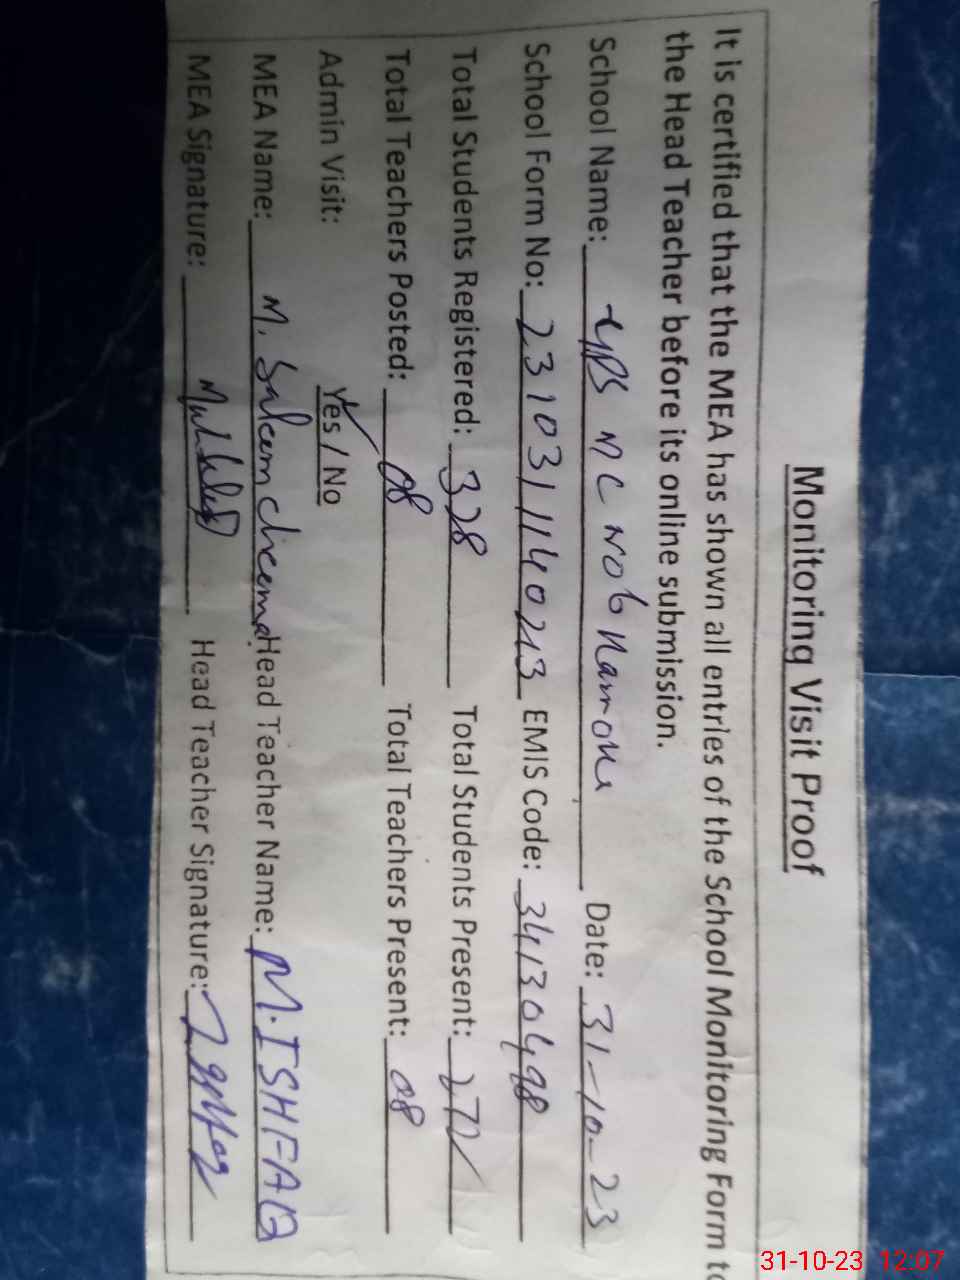 Monitoring Visit Proof
It is certified that the MEA has shown all entries of the School Monitoring Form to
the Head Teacher before its online submission.
School Name: GPS MC NO 6 Narowal Date: 31-10-23
School Form No: 2310311140213 EMIS Code: 34130498
Total Students Registered: 338 Total Students Present: 272
Total Teachers Posted: 08 Total Teachers Present: 08
Admin Visit: Yes / No
MEA Name: M. Saleem cheema Head Teacher Name: M. ISHFAQ
MEA Signature: Head Teacher Signature:
31-10-23 12:07